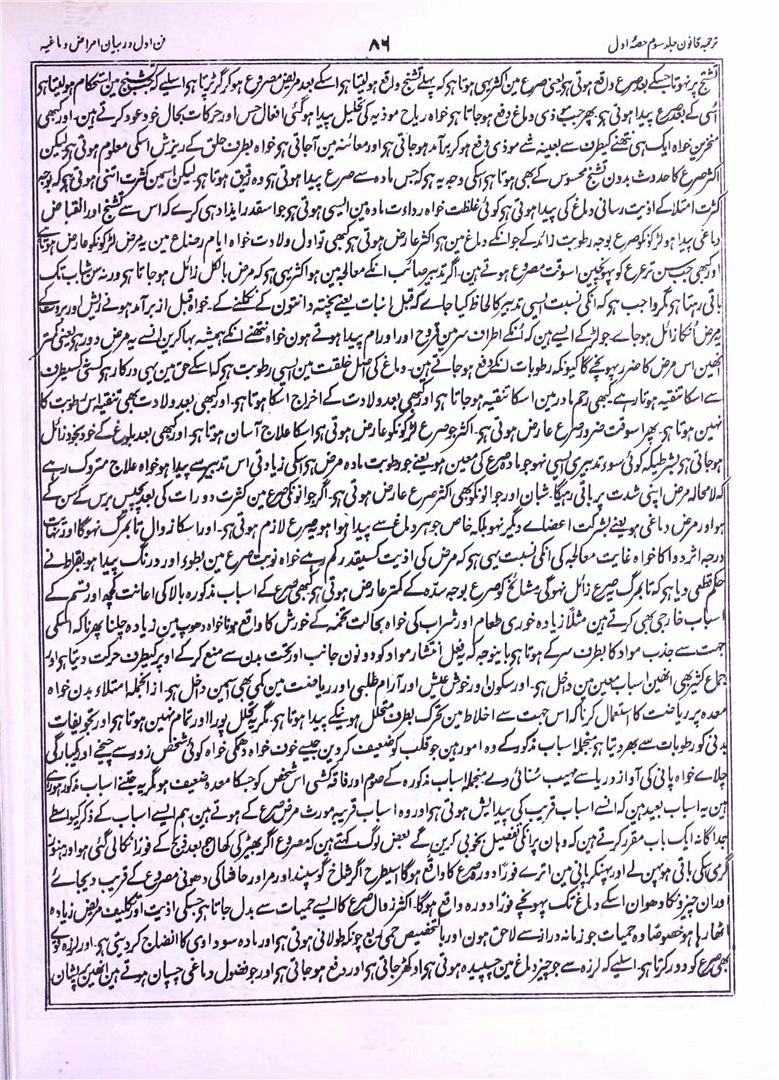 ترجمہ قانون جلد سوم حصۂ اول ۸۶ فن اول در بیان امراض دماغیہ
تشنج پر نہوتا جسکے بعد صرع واقع ہوتی ہے یعنی صرع مین اکثر یہی ہوتا ہے کہ پہلے تشنج واقع ہولیتا ہے اسکے بعد مریض مصروع ہوکر گر پڑتا ہے اسلیے کہ جب تشنج مین استحکام ہولیتا ہے
اُسی کے بعد صرع پیدا ہوتی ہے پھر جب شے موذی دماغ دفع ہوجاتا ہے خواہ ریاح موذیہ کی تحلیل پیدا ہوگئی افعال حس اور حرکات بحال خود عود کرتے ہین۔ اور کبھی
منخرین خواہ ایک ہی نتھنے کیطرف سے بعینہ شے موذی دفع ہوکر برآمد ہوجاتی ہے اور معائنہ مین آجاتی ہے خواہ بطرف حلق کے ریزش اسکی معلوم ہوتی ہے لیکن
اکثر صرع کا حدوث بدون تشنج محسوس کے بھی ہوتا ہے اسکی وجہ یہ ہے کہ جس مادہ سے صرع پیدا ہوتی ہے وہ رقیق ہوتا ہے۔ لیکن اسمین کثرت اتنی ہوتی ہے کہ بوجہ
کثرت امتلا کے اذیت رسانی دماغ کی پیدا ہوتی ہے کوئی غلظت خواہ رداوت مادہ مین ایسی ہوتی ہے جو اسقدر ایذا دہی کرے کہ اُس سے تشنج اور انقباض
دماغی پیدا ہو لڑکونکو صرع بوجہ رطوبت زائد کے جو انکے دماغ مین ہے اکثر عارض ہوتی ہے کبھی تو اول ولادت خواہ ایام رضاع مین یہ مرض لڑکونکو عارض ہوتا ہے
اور کبھی جب سن ترعرع کو پہونچین اسوقت مصروع ہوتے ہین۔ اگر تدبیر صائب انکے معالجہ مین ہو اکثر یہی ہے کہ مرض بالکل زائل ہوجاتا ہے ورنہ سن شباب تک
باقی رہتا ہے مگر واجب ہے کہ انکی نسبت ایسی تدبیر کا لحاظ کیا جاے کہ قبل انبات یعنے پختہ دانتون کے نکلنے کے۔ خواہ قبل از برآمد ہونے ریش اور بروت کے
یہ مرض اُنکا زائل ہوجاے۔ جو لڑکے ایسے ہین کہ اُنکے اطراف سر مین قروح اور اورام پیدا ہوتے ہون خواہ نتھنے انکے ہمیشہ بہا کرین اُنسے یہ مرض دور ہے یعنی کمتر
اُنھین اس مرض کا ضرر پہونچے گا کیونکہ رطوبات انکے دفع ہوجاتے ہین۔ دماغ کی اصل خلقت مین ایسی رطوبت ہے کہ اسکے حق مین یہی درکار ہے کہ کسی نہ کسیطرف
سے اسکا تنقیہ ہوتا رہے کبھی رحم مادر مین اسکا تنقیہ ہوجاتا ہے اور کبھی بعد ولادت کے اخراج اسکا ہوتا ہے۔ اور کبھی بعد ولادت بھی تنقیہ اس رطوبت کا
نہین ہوتا ہے۔ پھر اسوقت ضرور صرع عارض ہوتی ہے۔ اکثر جو صرع لڑکونکو عارض ہوتی ہے اسکا علاج آسان ہوتا ہے۔ اور کبھی بعد بلوغ کے خود بخود زائل
ہوجاتی ہے بشرطیکہ کوئی سوء تدبیری ایسی نہو جو مادہ صرع کی معین ہو یعنے جو رطوبت مادہ مرض ہے اسکی زیادتی اس تدبیر سے پیدا ہو خواہ علاج متروک رہے
کہ لامحالہ مرض اپنی شدت پر باقی رہیگا۔ شبان اور جوانونکو بھی اکثر صرع عارض ہوتی ہے۔ اگر جوانونکی صرع مین کثرت دورات کی بعد پچیس برس کے سن کے
ہو اور مرض دماغی ہو یعنے بشرکت اعضاے دیگر نہو بلکہ خاص جوہر دماغ سے پیدا ہوا ہو یہ صرع لازم ہوتی ہے۔ اور اسکا زوال تا بمرگ نہوگا اور نہایت
درجہ اثر دوا کا خواہ غایت معالجہ کی انکی نسبت یہی ہے کہ مرض کی اذیت کسیقدر کم رہے خواہ نوبت صرع مین بطوء اور درنگ پیدا ہو بقراط نے
حکم قطعی دیا ہے کہ تا بمرگ یہ صرع زائل نہوگی مشائخ کو صرع بوجہ سدہ کے کمتر عارض ہوتی ہے کبھی صرع کے اسباب مذکورہ بالا کی اعانت کچھ اور قسم کے
اسباب خارجی بھی کرتے ہین مثلاً زیادہ خوری طعام اور شراب کی خواہ بحالت تخمہ کے خورش کا واقع ہونا خواہ دھوپ مین زیادہ چلنا پھرنا کہ اسکی
جہت سے جذب مواد کا بطرف سر کے ہوتا ہے باینوجہ کہ یہ فعل انتشار مواد کو دونون جانب اور تحت بدن سے منع کرکے اوپر کیطرف حرکت دیتا ہے اور
جماع کثیر بھی انھین اسباب معین مین دخیل ہے۔ اور سکون اور خوش عیش اور آرام طلبی اور ریاضت مین کمی بھی اسمین دخیل ہے۔ از انجملہ امتلاء بدن خواہ
معدہ پر ریاضت کا استعمال کرنا کہ اس جہت سے اخلاط مین تحرک بطرف متحلل ہونیکے پیدا ہوتا ہے۔ مگر یہ تحلل پورا اور تمام نہین ہوتا ہے اور تجویفات
بدنی کو رطوبات سے بھر دیتا ہے منجملہ اسباب مذکور کے وہ امور ہین جو قلب کو ضعیف کردین جیسے خوف خواہ دھمکی خواہ کوئی شخص زور سے چیخے اور یکبارگی
چلاے خواہ پانی کی آواز دریا سے مہیب سنائی دے منجملہ اسباب مذکورہ کے صوم اور فاقہ کشی اس شخص کو جسکا معدہ ضعیف ہو مگر یہ جتنے اسباب مذکور ہوے
ہین یہ اسباب بعید ہین کہ انسے اسباب قریب کی پیدایش ہوتی ہے اور وہ اسباب قریبہ مورث مرض صرع کے ہوتے ہین ہم ایسے اسباب کے ذکر کیواسطے
جداگانہ ایک باب مقرر کرتے ہین کہ وہان پر انکی تفصیل بخوبی کرین گے بعض لوگ کہتے ہین کہ مصروع اگر بھیڑ کی کھال جو بعد ذبح کے فوراً نکالی گئی ہو اور ہنوز
گرمی اسکی باقی ہو پہن لے اور پہنکر پانی مین اترے فوراً دورہ صرع کا واقع ہوگا اسیطرح اگر شاخ گوسپند اور مر اور حاشا کی دھونی مصروع کے قریب دیجائے
اور ان چیزونکا دھوان اسکے دماغ تک پہونچے فوراً دورہ واقع ہوگا۔ اکثر زوال صرع کا ایسے حمیات سے بدل جاتا ہے جسکی اذیت اور تکلیف مریض زیادہ
اٹھا رہا ہو خصوصاً وہ حمیات جو زمانہ دراز سے لاحق ہون اور بالتخصیص حمی ربع چونکہ طولانی ہوتی ہے اور مادہ سوداوی کا انضاج کردیتی ہے۔ اور لرزہ قوی
بھی صرع کو دور کرتا ہے۔ اسلیے کہ لرزہ سے جو چیز دماغ مین چسپیدہ ہوتی ہے اوکھڑ جاتی ہے اور دفع ہوجاتی ہے اور جو فضول دماغی چسپان ہوتے ہین انھین پریشان